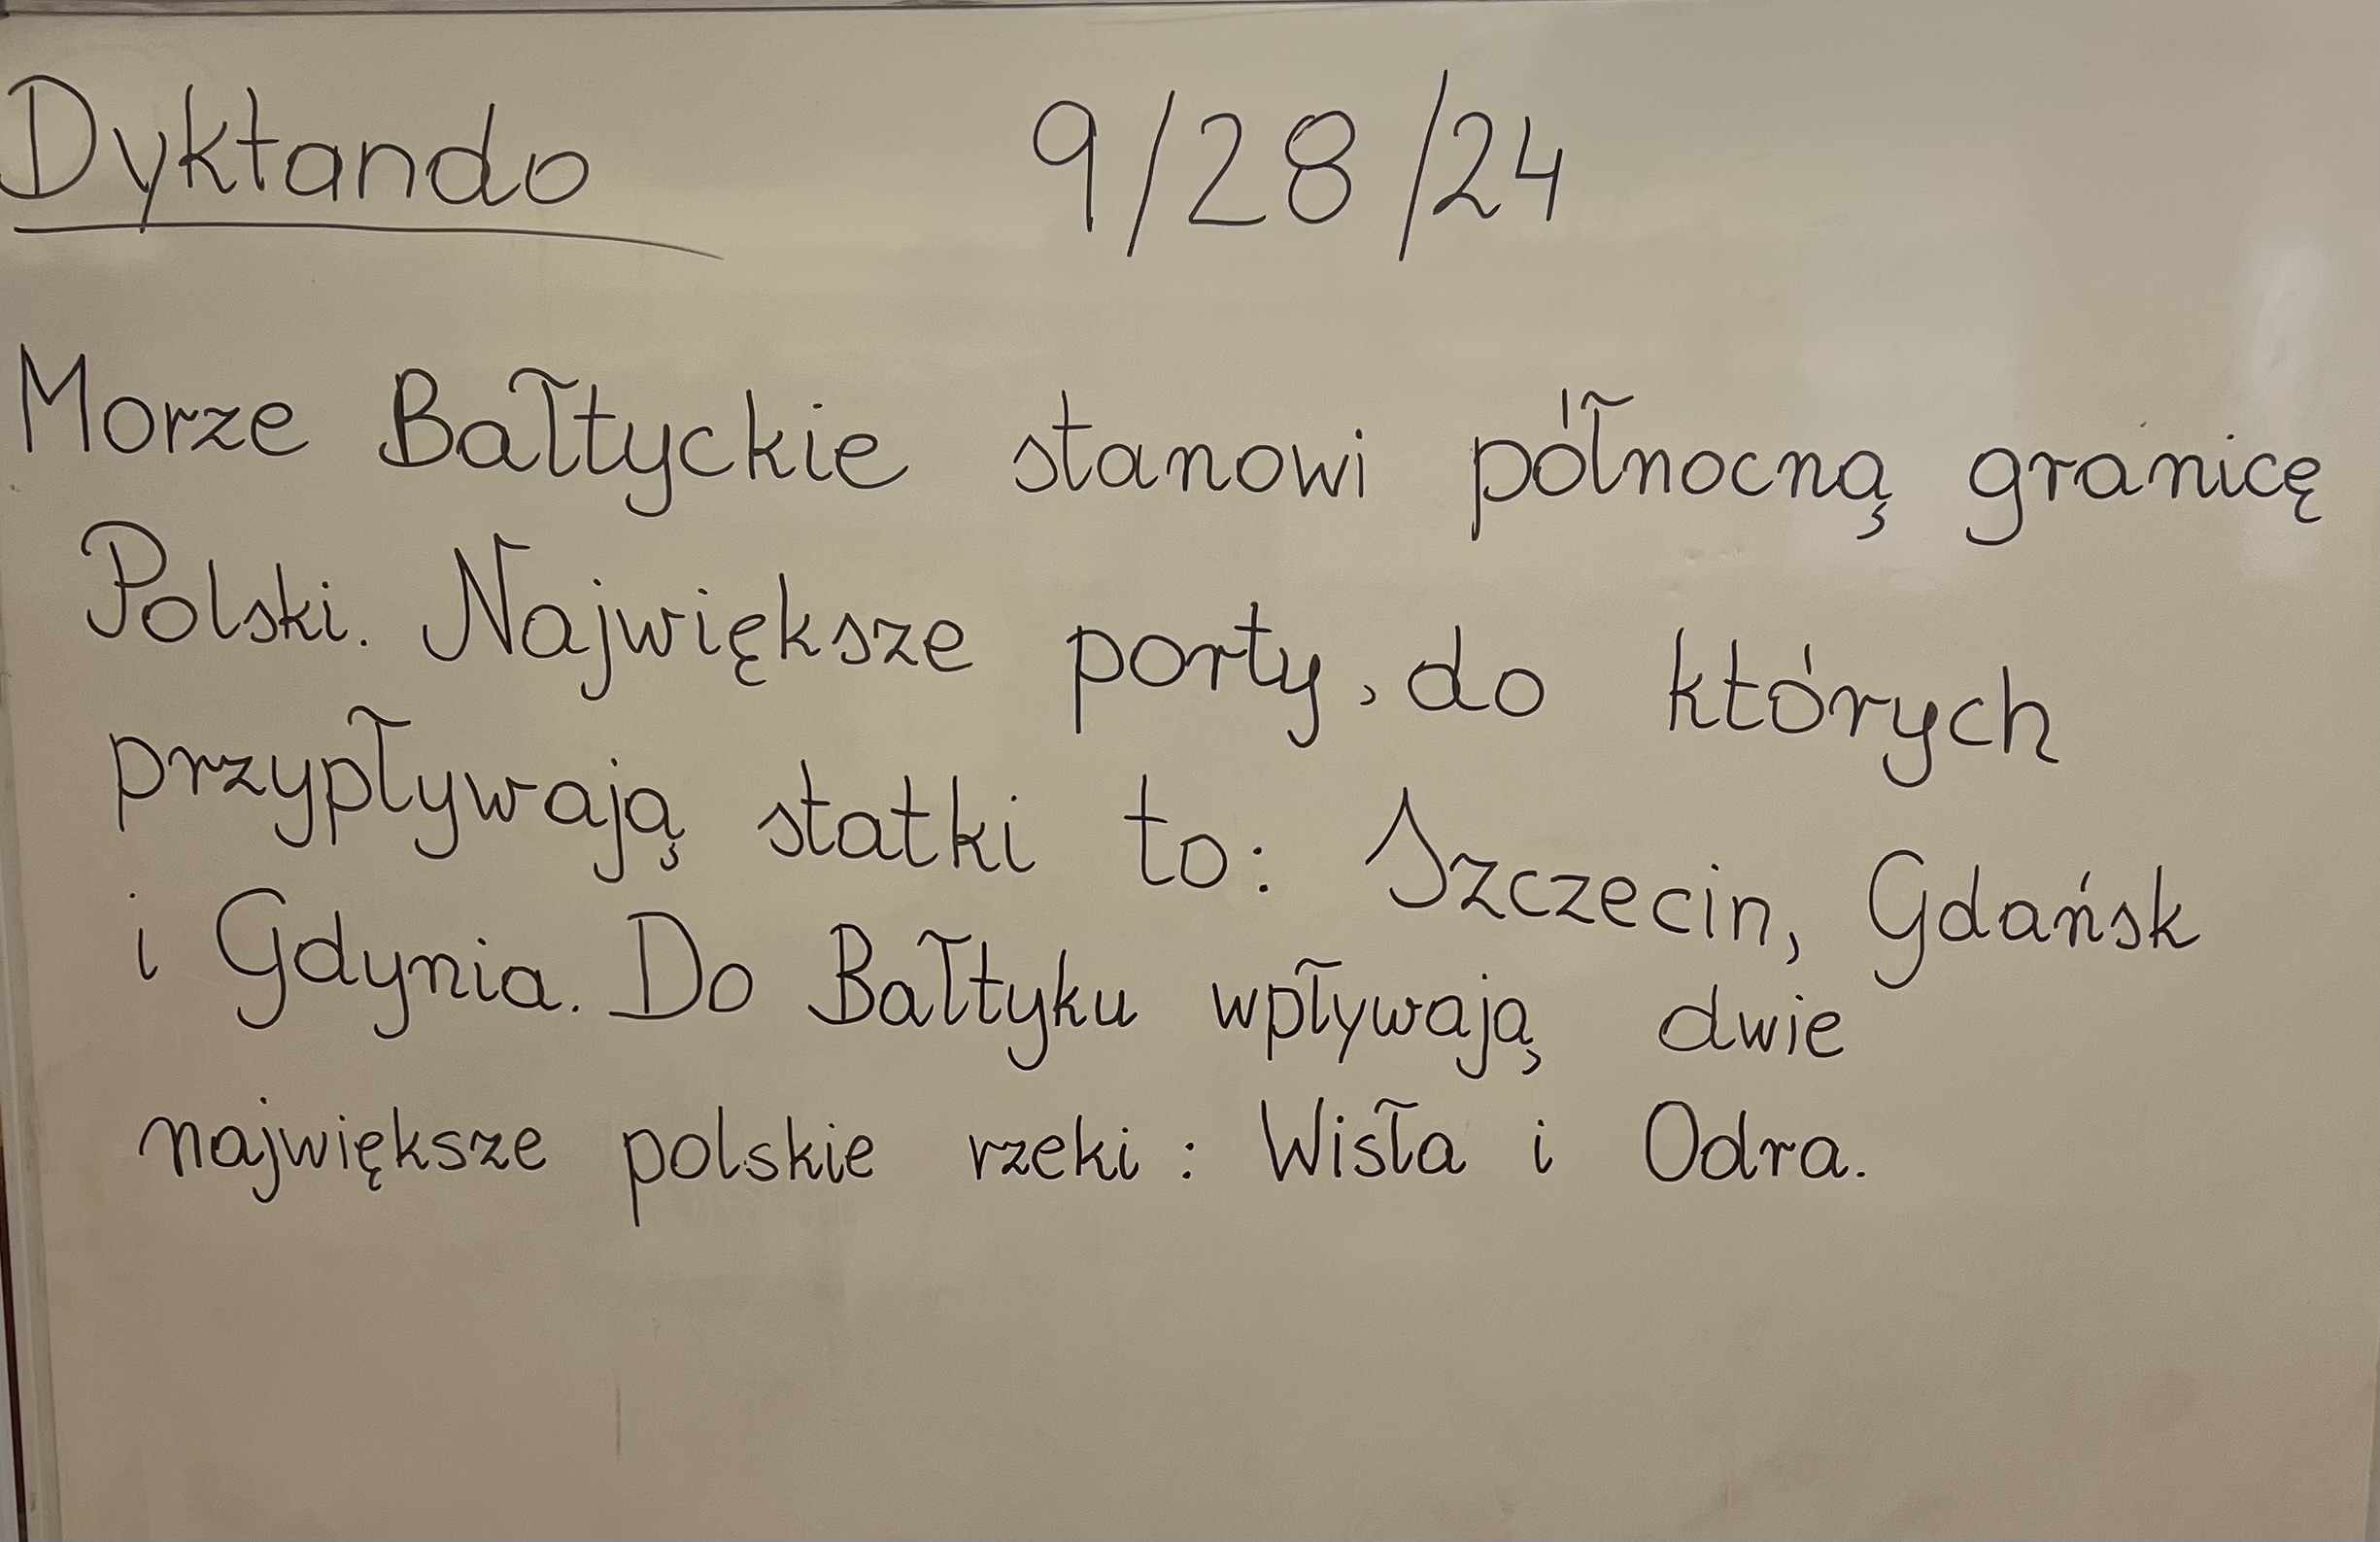 Dyktando 9/28/24
Morze Bałtyckie stanowi północną granicę
Polski. Największe porty, do których
przypływają statki to: Szczecin, Gdańsk
i Gdynia. Do Bałtyku wpływają dwie
największe polskie rzeki: Wisła i Odra.